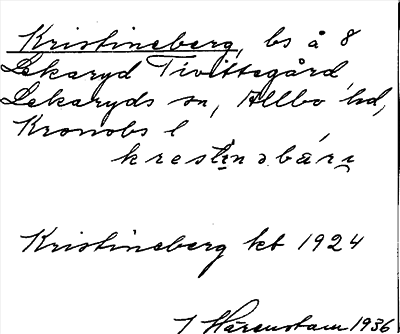 Kristineberg, bs å 8
Lekaryd Tivittegård
Lekaryds sn, Allbo hd,
Kronobs l
krestinəbärɩ
Kristineberg kt 1924
J Härenstam 1936